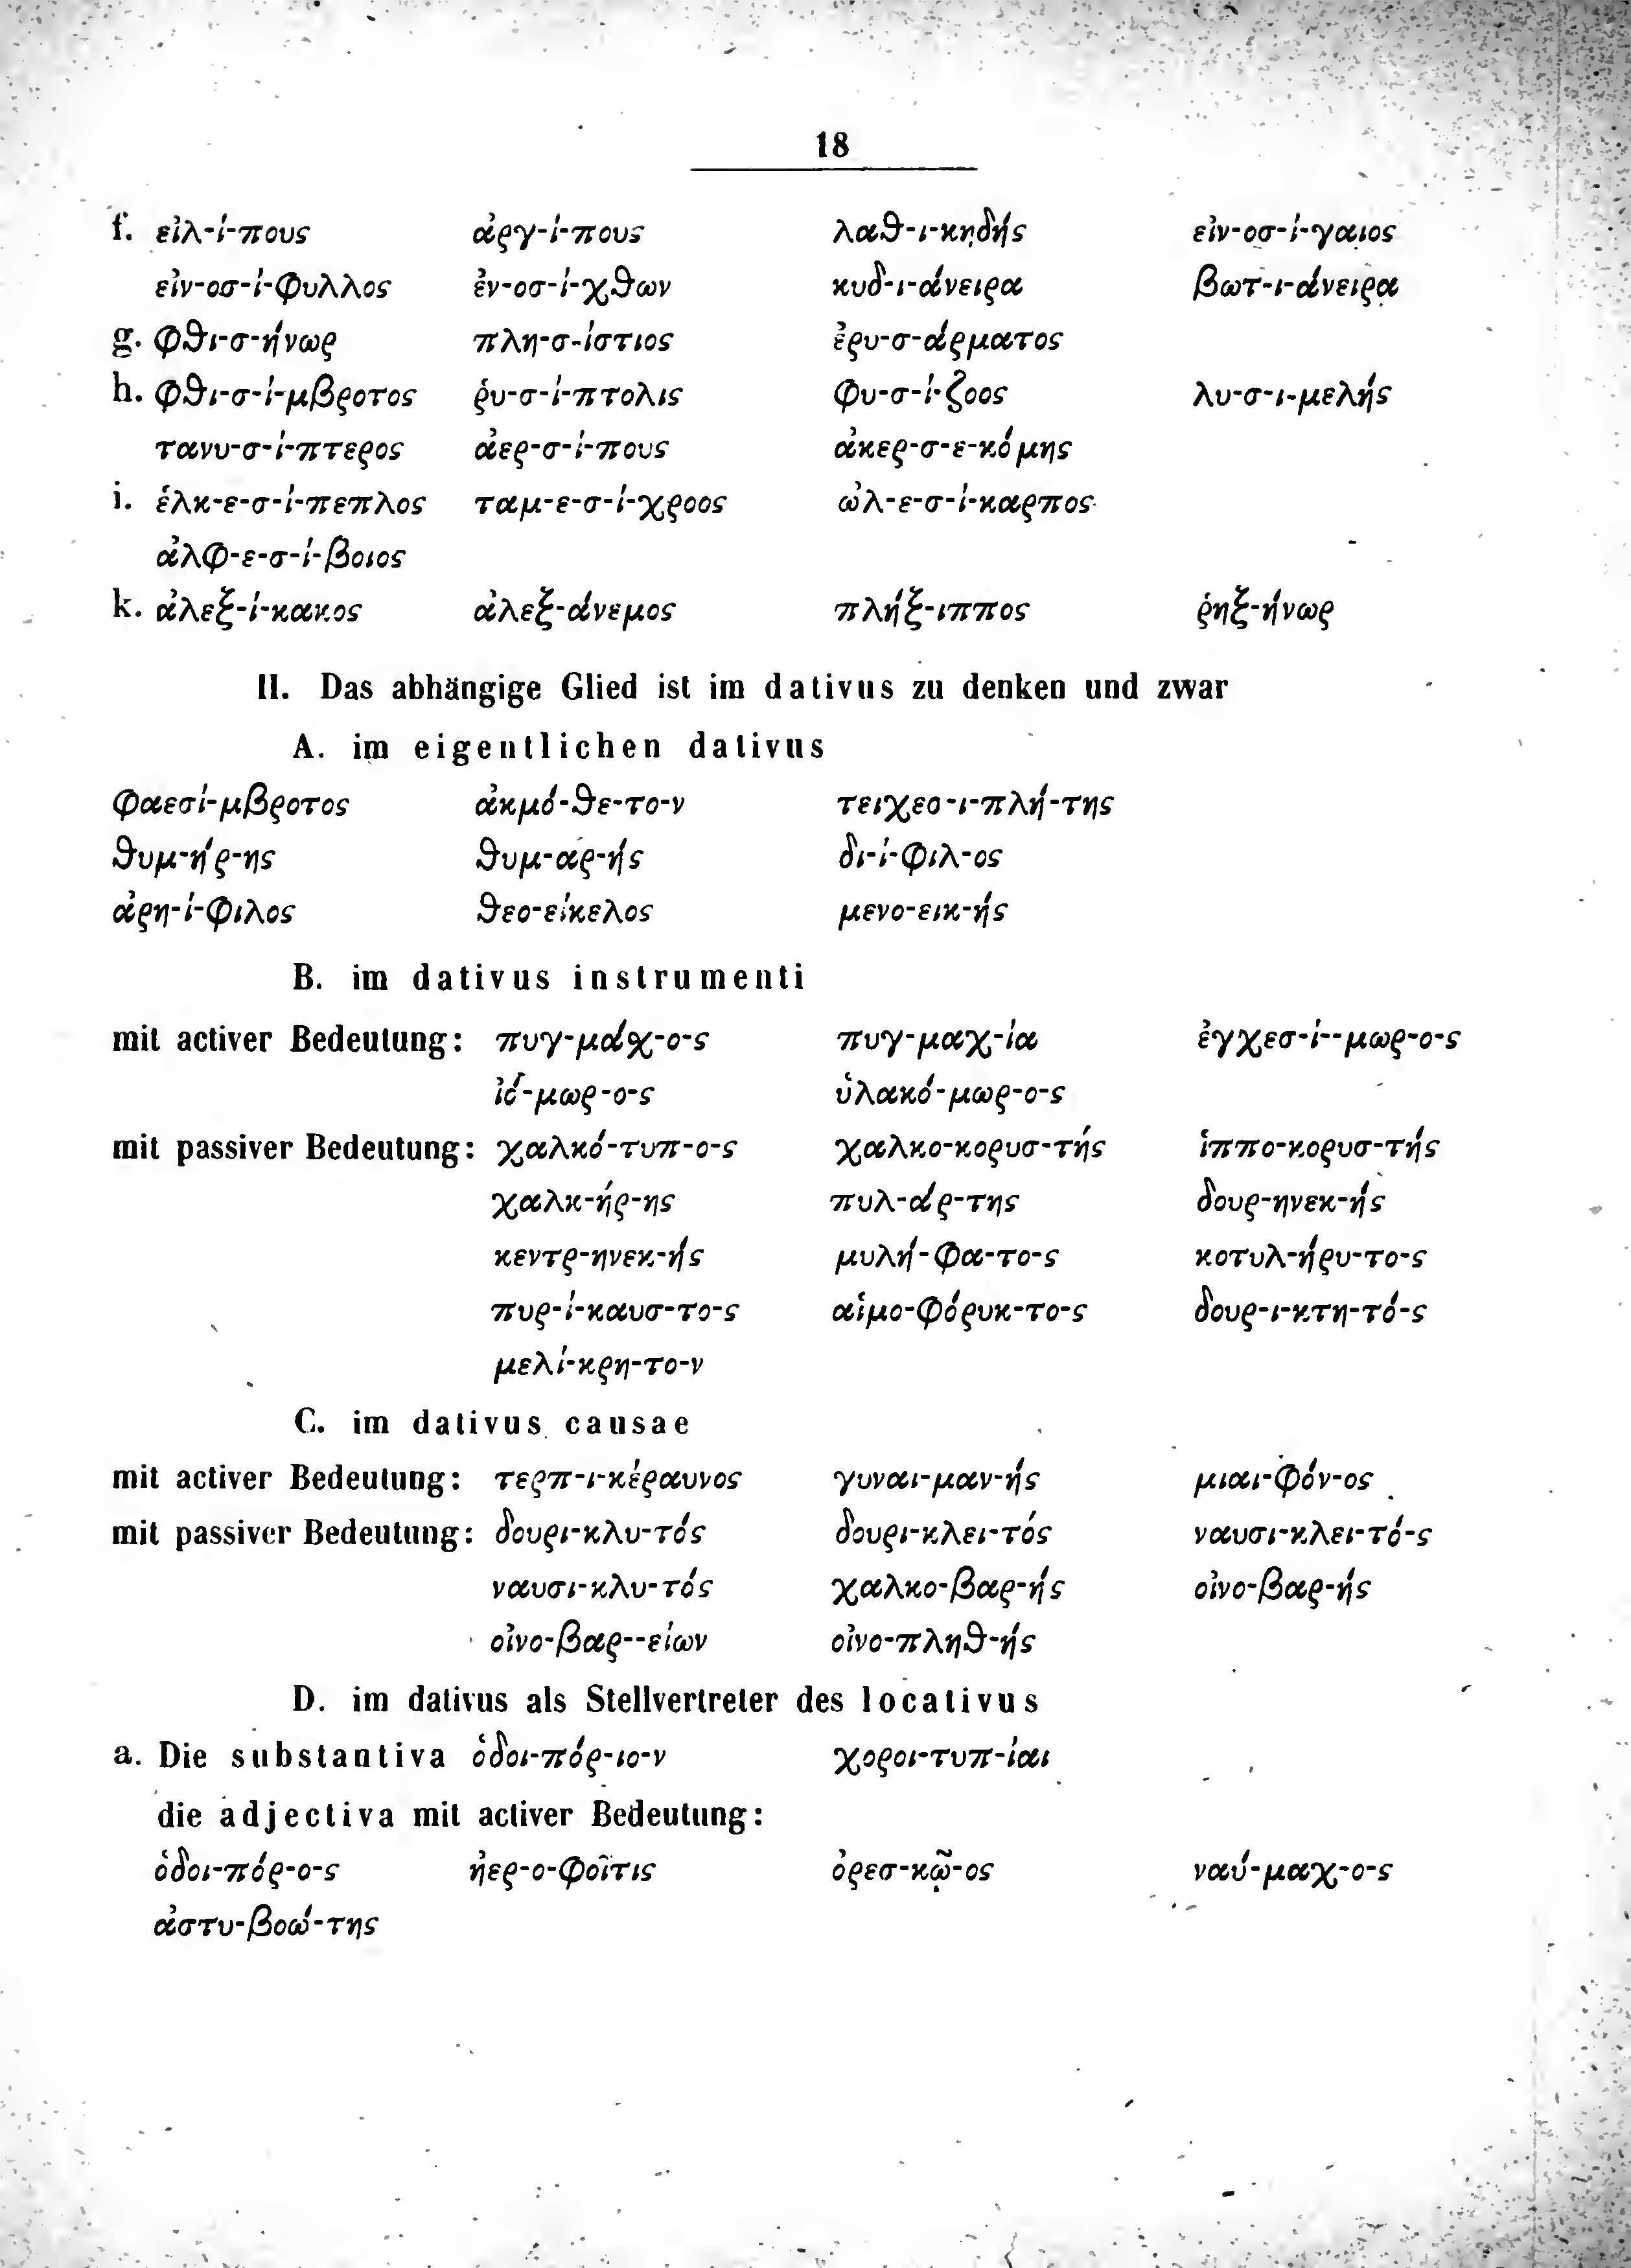 18
f. εἰλ-ί-πους ἀργ-ί-πους λαθ-ι-κηδής εἰν-οσ-ί-γαιος
εἰν-οσ-ί-φυλλος ἐν-οσ-ί-χθων κυδ-ι-άνειρα βωτ-ι-άνειρα
g. φθι-σ-ήνωρ πλη-σ-ίστιος ἐρυ-σ-άρματος
h. φθι-σ-ί-μβροτος ῥυ-σ-ί-πτολις φυ-σ-ί-ζοος λυ-σ-ι-μελής
τανυ-σ-ί-πτερος ἀερ-σ-ί-πους ἀκερ-σ-ε-κόμης
i. ἑλκ-ε-σ-ί-πεπλος ταμ-ε-σ-ί-χροος ὠλ-ε-σ-ί-καρπος
ἀλφ-ε-σ-ί-βοιος
k. ἀλεξ-ί-κακος ἀλεξ-άνεμος πλήξ-ιππος ῥηξ-ήνωρ
II. Das abhängige Glied ist im dativus zu denken und zwar
A. im eigentlichen dativus
φαεσί-μβροτος ἀκμό-θε-το-ν τειχεσ-ι-πλή-της
θυμ-ήρ-ης θυμ-αρ-ής δι-ί-φιλ-ος
ἀρη-ί-φιλος θεο-είκελος μενο-εικ-ής
B. im dativus instrumenti
mit activer Bedeutung: πυγ-μάχ-ο-ς πυγ-μαχ-ία ἐγχεσ-ί--μωρ-ο-ς
ἰό-μωρ-ο-ς ὑλακό-μωρ-ο-ς
mit passiver Bedeutung: χαλκό-τυπ-ο-ς χαλκο-κορυσ-τής ἱππο-κορυσ-τής
χαλκ-ήρ-ης πυλ-άρ-της δουρ-ηνεκ-ής
κεντρ-ηνεκ-ής μυλή-φα-το-ς κοτυλ-ήρυ-το-ς
πυρ-ί-καυσ-το-ς αἱμο-φόρυκ-το-ς δουρ-ι-κτη-τό-ς
μελί-κρη-το-ν
C. im dativus causae
mit activer Bedeutung: τερπ-ι-κέραυνος γυναι-μαν-ής μιαι-φόν-ος
mit passiver Bedeutung: δουρι-κλυ-τός δουρι-κλει-τός ναυσι-κλει-τό-ς
ναυσι-κλυ-τός χαλκο-βαρ-ής οἰνο-βαρ-ής
οἰνο-βαρ--είων οἰνο-πληθ-ής
D. im dativus als Stellvertreter des locativus
a. Die substantiva ὁδοι-πόρ-ιο-ν χοροι-τυπ-ίαι
die adjectiva mit activer Bedeutung:
ὁδοι-πόρ-ο-ς ἠερ-ο-φοῖτις ὀρεσ-κῷ-ος ναύ-μαχ-ο-ς
ἀστυ-βοώ-της